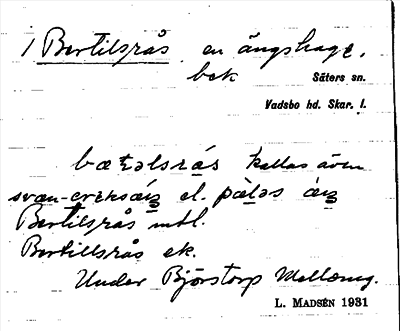 1 Bertilsrås en ängshage,
bek Säters sn.
Vadsbo hd. Skar. l.
bætəlsrás kallas även
svæn-ereksáiz el. pàləs áiz
Bertilsrås mtl.
Bertillsrås ek.
Under Björstorp Mellomg.
L. MADSÉN 1931